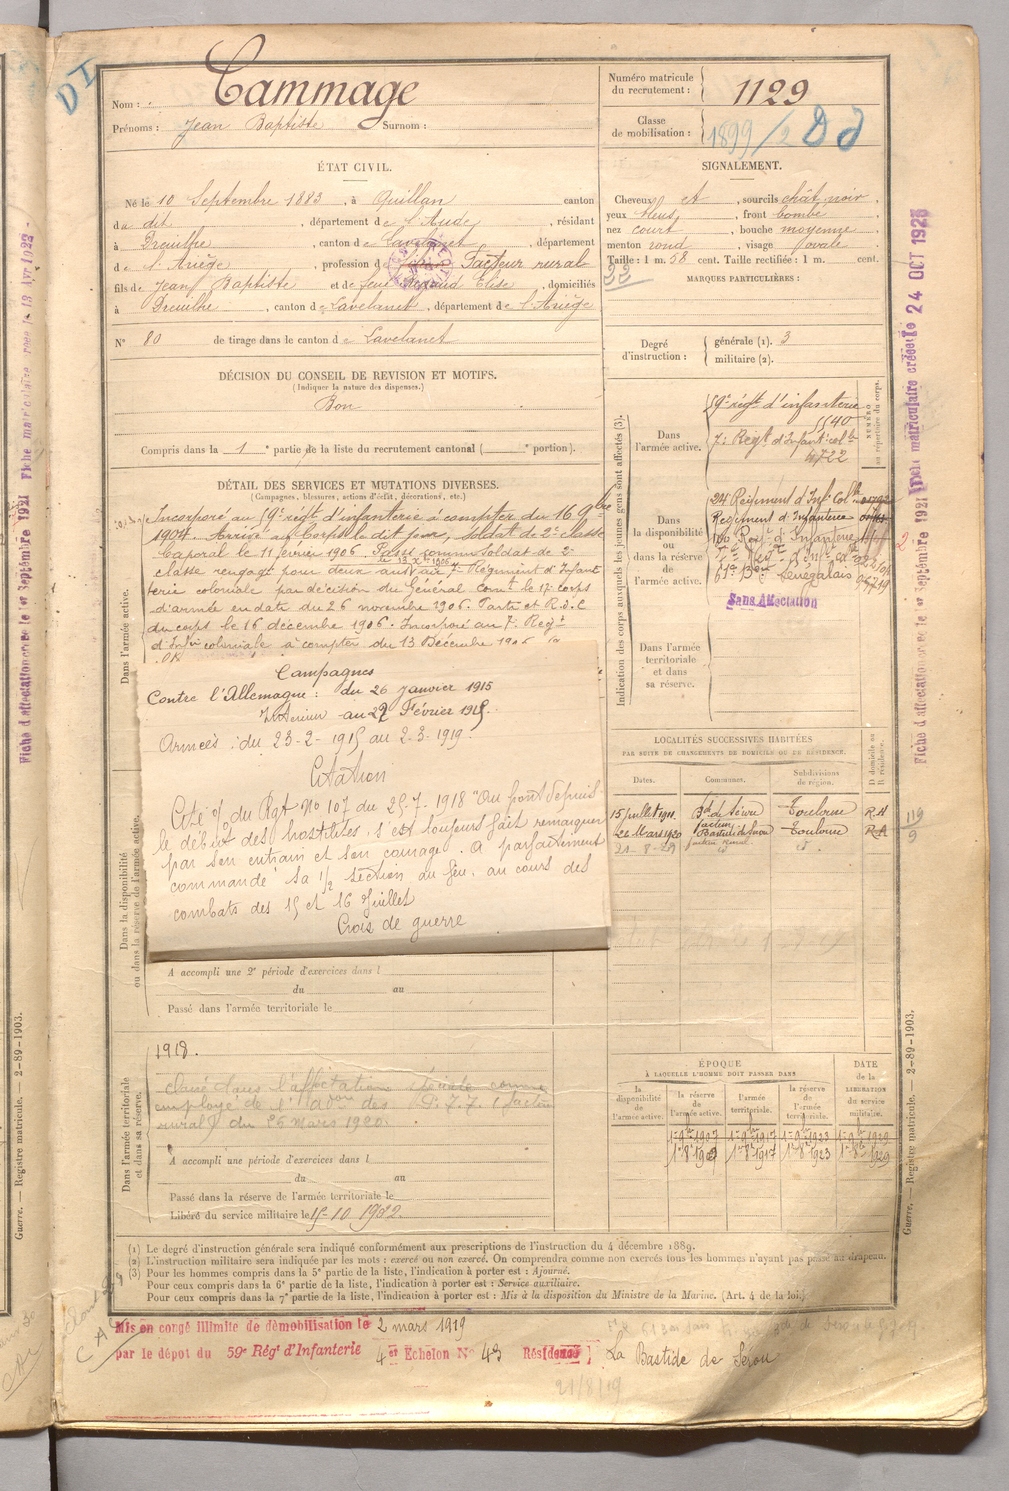 DI
Nom : Cammage
Prénoms : Jean Baptiste Surnom :
Numéro matricule du recrutement : 1129
Classe de mobilisation : 1899/2 Dd
ÉTAT CIVIL.
Né le 10 Septembre 1883, à Quillan canton
d u dit, département de l'Aude, résidant
à Dreuilhe, canton de Lavelanet, département
de l'Ariège, profession de Facteur rural
fils de Jean Baptiste et de feue Elise, domiciliés
à Dreuilhe, canton de Lavelanet, département de l'Ariège
N° 80 de tirage dans le canton de Lavelanet
SIGNALEMENT.
Cheveux et, sourcils chât. noir,
yeux bleus, front bombé
nez court, bouche moyenne
menton rond, visage ovale
Taille : 1 m. 58 cent. Taille rectifiée : 1 m. cent.
22
MARQUES PARTICULIÈRES :
Degré d'instruction : générale (1). 3
militaire (2).
DÉCISION DU CONSEIL DE REVISION ET MOTIFS.
(Indiquer la nature des dispenses.)
Bon
Compris dans la 1e partie de la liste du recrutement cantonal ( e portion).
DÉTAIL DES SERVICES ET MUTATIONS DIVERSES.
(Campagnes, blessures, actions d'éclat, décorations, etc.)
Dans l'armée active.
Incorporé au 59e régt d'infanterie à compter du 16 9bre
1904. Arrivé au Corps le dit jour, soldat de 2e classe
Caporal le 11 février 1906. Passé comme Soldat de 2e
classe rengagé pour deux ans au 7e Régiment d'Infan
terie coloniale par décision du Général Comt le 17e corps
d'armée en date du 26 novembre 1906. Parti et R.d.C
du corps le 16 décembre 1906. Incorporé au 7e Régt
d'Infie coloniale à compter du 13 Décembre 1906
Campagnes
Contre l'Allemagne : du 26 Janvier 1915
Intérieur au 22 Février 1915.
Armées : du 23-2-1915 au 2-3-1919
Citation
Cité o/ du Rgt No 107 du 25-7-1918 "Au front depuis
le début des hostilités, s'est toujours fait remarquer
par son entrain et son courage. A parfaitement
commandé sa 1/2 section au feu, au cours des
combats des 15 et 16 Juillet
Croix de guerre
Dans la disponibilité ou dans la réserve de l'armée active.
A accompli une 2e période d'exercices dans l
du au
Passé dans l'armée territoriale le
Dans l'armée territoriale et dans sa réserve.
1918.
Classé dans l'affectation spéciale comme
employé de l'Adon des P.T.T. (facteur
rural) du 25 Mars 1920.
A accompli une période d'exercices dans l
du au
Passé dans la réserve de l'armée territoriale le
Libéré du service militaire le 15-10 1932.
Indication des corps auxquels les jeunes gens sont affectés (3).
NUMÉRO au répertoire du corps.
Dans l'armée active.
59e régt d'infanterie
5540
7e Régt d'Infant. colle
4722
Dans la disponibilité ou dans la réserve de l'armée active.
24 Régiment d'Inf. Colle
Régiment d'Infanterie
Régt d'Infanterie
Régt d'Inf. col.
61e Bon Sénégalais
Sans Affectation
Dans l'armée territoriale et dans sa réserve.
LOCALITÉS SUCCESSIVES HABITÉES
PAR SUITE DE CHANGEMENTS DE DOMICILE OU DE RÉSIDENCE.
Dates. Communes. Subdivisions de région. D domicile ou R résidence.
15 juillet 1911. Bd de Sérou Toulouse R.A
26 Mars 1920 facteur Bastide de Sérou Toulouse R.A
21-8-29 facteur rural id
119
9
ÉPOQUE
À LAQUELLE L'HOMME DOIT PASSER DANS
DATE de la LIBÉRATION du service militaire.
la disponibilité de l'armée active. la réserve de l'armée active. l'armée territoriale. la réserve de l'armée territoriale.
1er 9bre 1907 1er 9bre 1917 1er 9bre 1923 1er 9bre 1929
1er 8bre 1907 1er 8bre 1917 1er 8bre 1923 1er 8bre 1929
(1) Le degré d'instruction générale sera indiqué conformément aux prescriptions de l'instruction du 4 décembre 1889.
(2) L'instruction militaire sera indiquée par les mots : exercé ou non exercé. On comprendra comme non exercés tous les hommes n'ayant pas passé au drapeau.
(3) Pour les hommes compris dans la 5e partie de la liste, l'indication à porter est : Ajourné.
Pour ceux compris dans la 6e partie de la liste, l'indication à porter est : Service auxiliaire.
Pour ceux compris dans la 7e partie de la liste, l'indication à porter est : Mis à la disposition du Ministre de la Marine. (Art. 4 de la loi.)
Mis en congé illimité de démobilisation le 2 mars 1919
par le dépôt du 59e Régt d'Infanterie 4er Echelon N° 43 Résidence La Bastide de Sérou
21/8/19
Guerre. — Registre matricule. — 2-89-1903.
Guerre. — Registre matricule. — 2-89-1903.
Fiche d'affectation créée le 1er Septembre 1921 Fiche matriculaire créée le 24 OCT 1923
Fiche d'affectation créée le 1er Septembre 1921 Fiche matriculaire créée le 13 Avr 1923